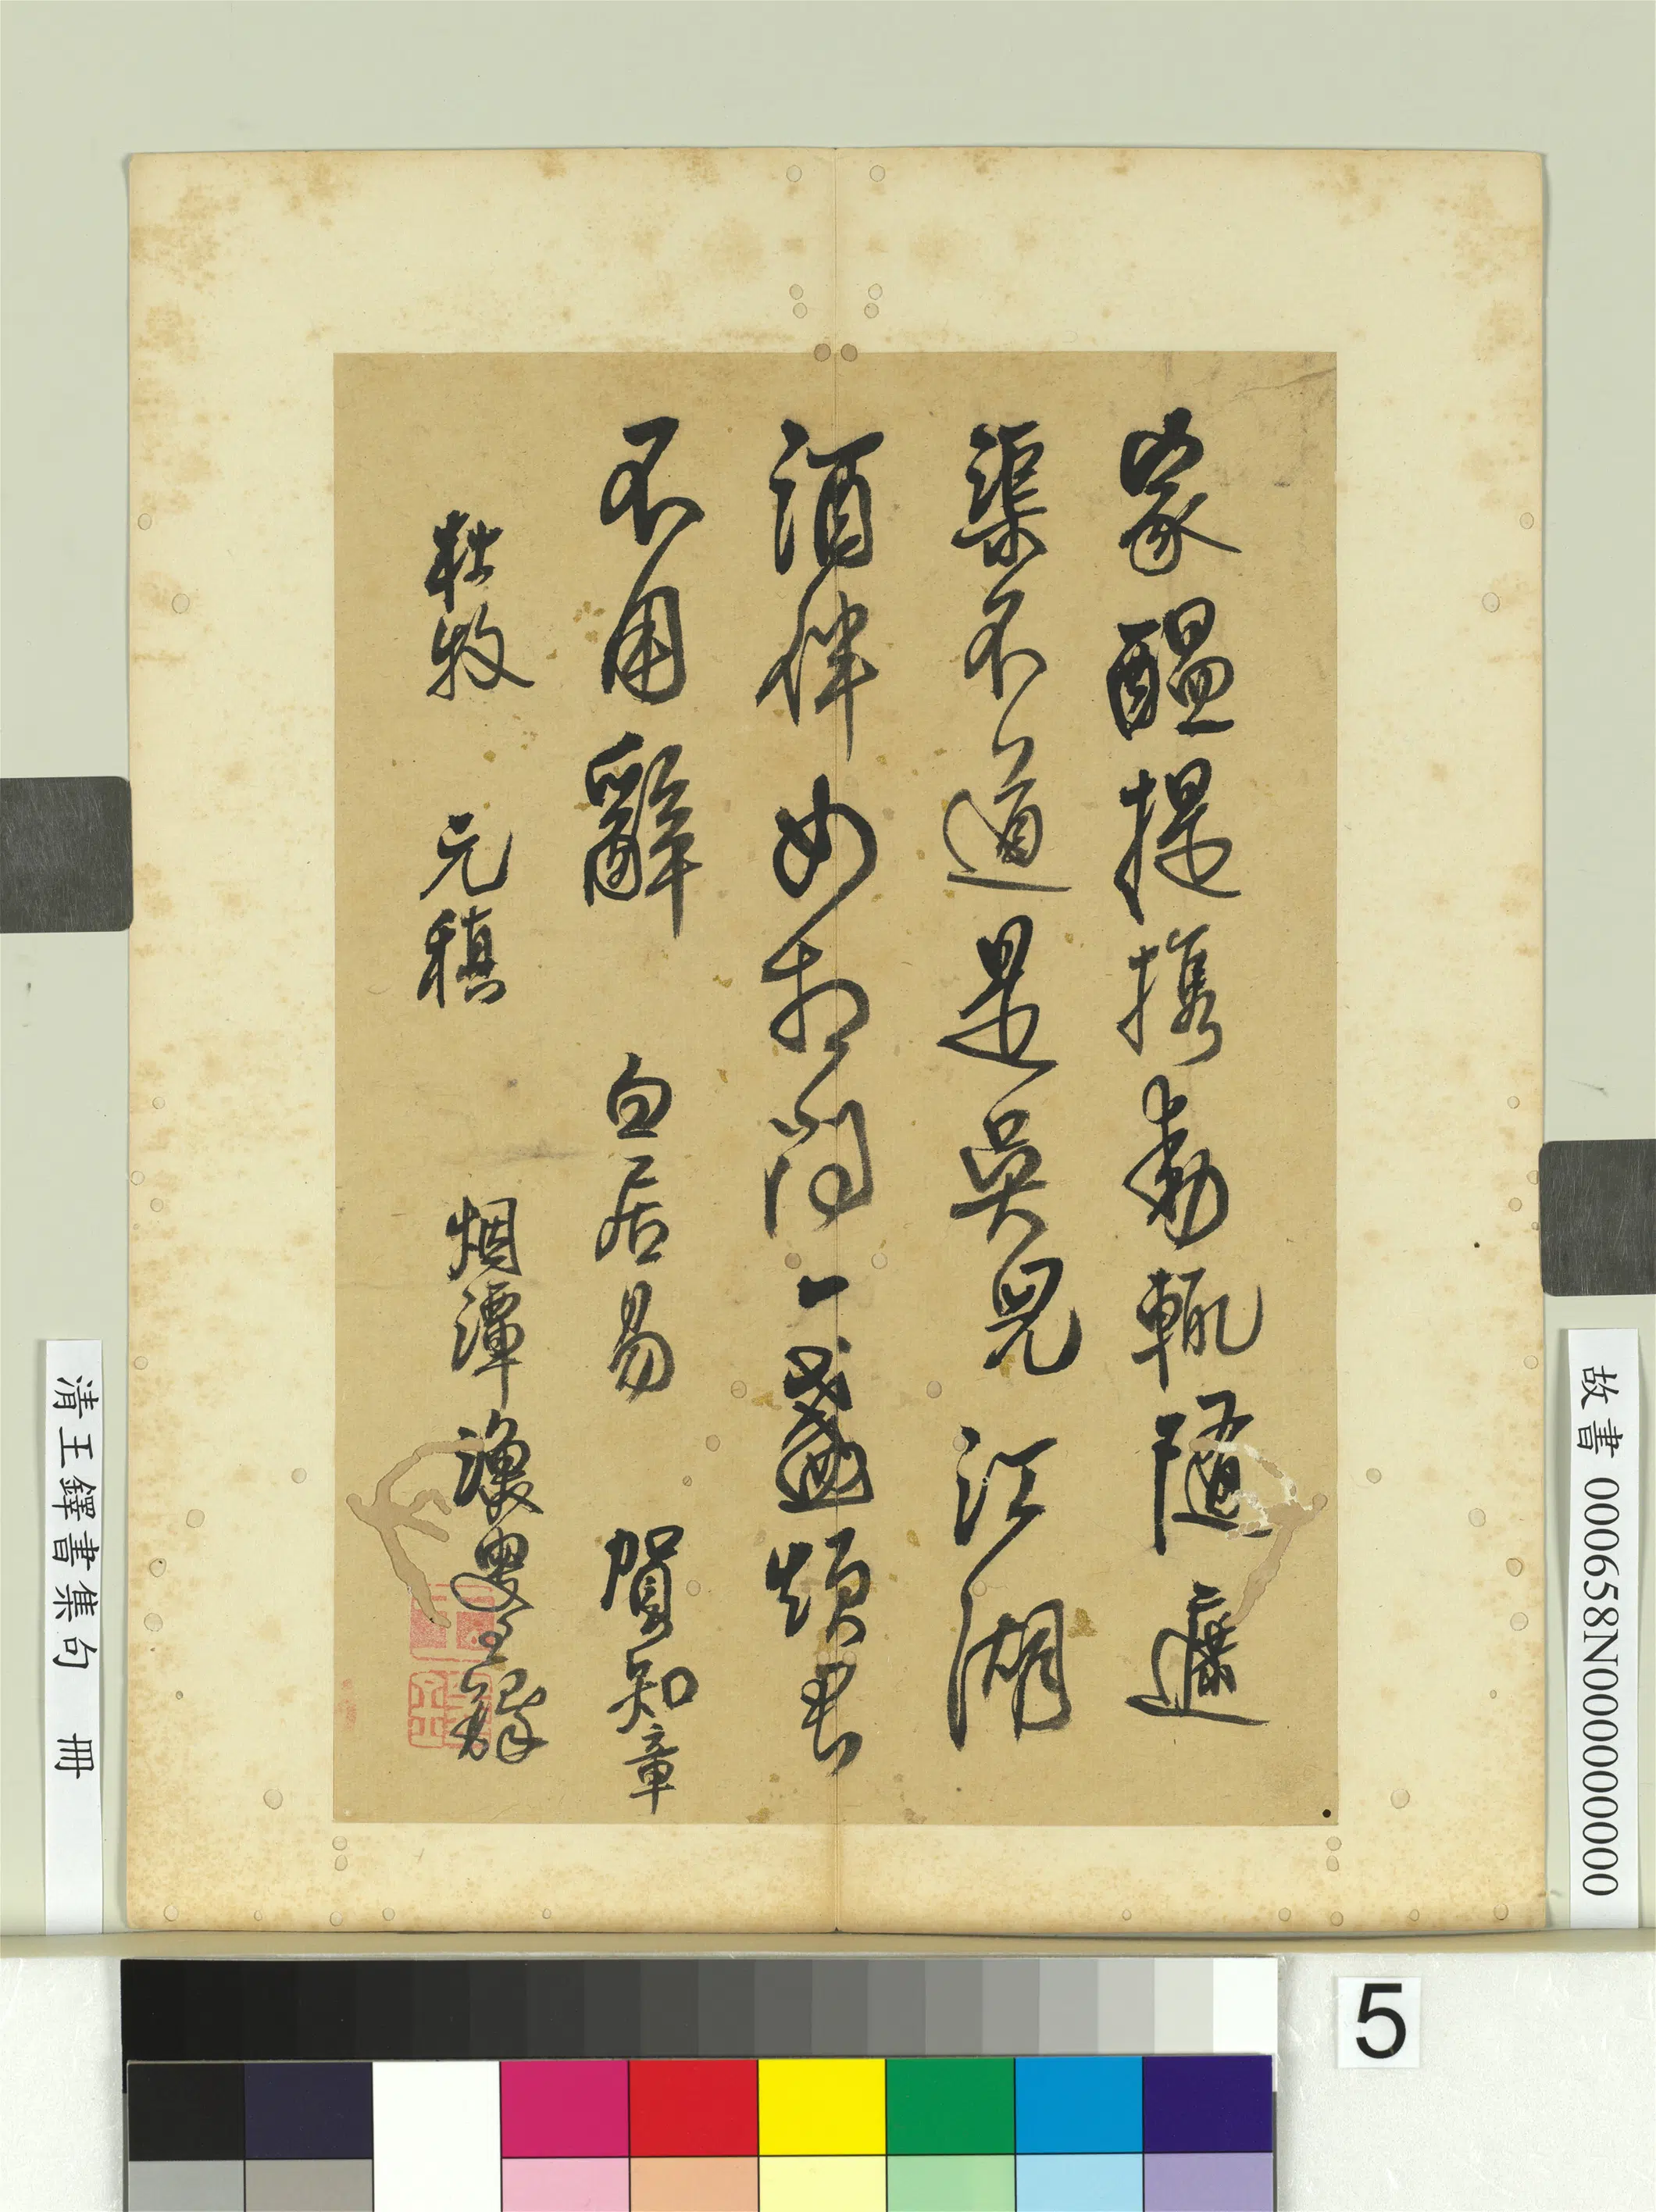 家醞提攜動輒隨遮
渠不道是吳兒江湖
酒伴如相問一盞煩君
不用辭 白居易 賀知章
杜牧 元稹 烟潭漁叟王鐸
故書 000658N000000000
清王鐸書集句 冊
5